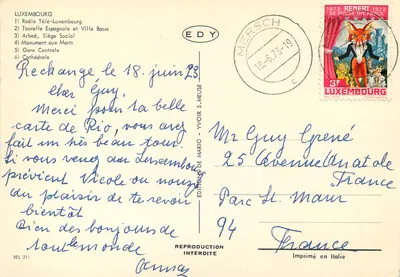 LUXEMBOURG
1) Radio Télé-Luxembourg
2) Tourelle Espagnole et Ville Basse
3) Arbed, Siège Social
4) Monument aux Morts
5) Gare Centrale
6) Cathédrale
EDY
MERSCH
18-6.73-19
c
1873 RENERT 1973
LUXEMBOURG
3F
Reckange le 18. juin 73
Cher Guy,
Merci pour ta belle
carte de Rio, vous avez
fait un très beau tour
si vous venez au Luxembourg
prévient Nicole ou nous
du plaisir de te revoir
bientôt
Bien des bonjours de
tout le monde
EDITIONS DE MARIO - YVOIR S/MEUSE
REPRODUCTION
INTERDITE
Mr Guy Grené
25 Avenue Anatole
France
Parc St. Maur
94
France
Imprimé en Italie